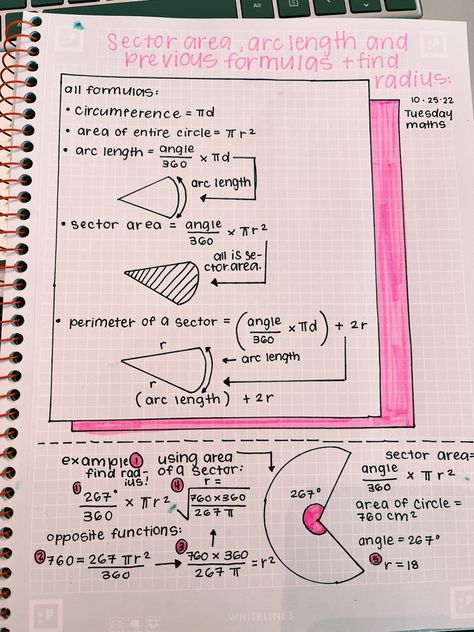 Alt
Sector area, arc length and
previous formulas + find
radius:
10-25-22
Tuesday
maths
all formulas:
• circumference = πd
• area of entire circle = πr²
• arc length = angle/360 × πd
arc length
• sector area = angle/360 × πr²
all is se-
ctor area.
• perimeter of a sector = (angle/360 × πd) + 2r
r
arc length
r
(arc length) + 2r
example 1 using area
find rad- of a sector:
ius!
1 267°/360 × πr²
4 r =
√760×360/267π
opposite functions:
2 760 = 267πr²/360
3 760 × 360/267π = r²
267°
sector area=
angle/360 × πr²
area of circle =
760 cm²
angle = 267°
5 r = 18
WHITELINES